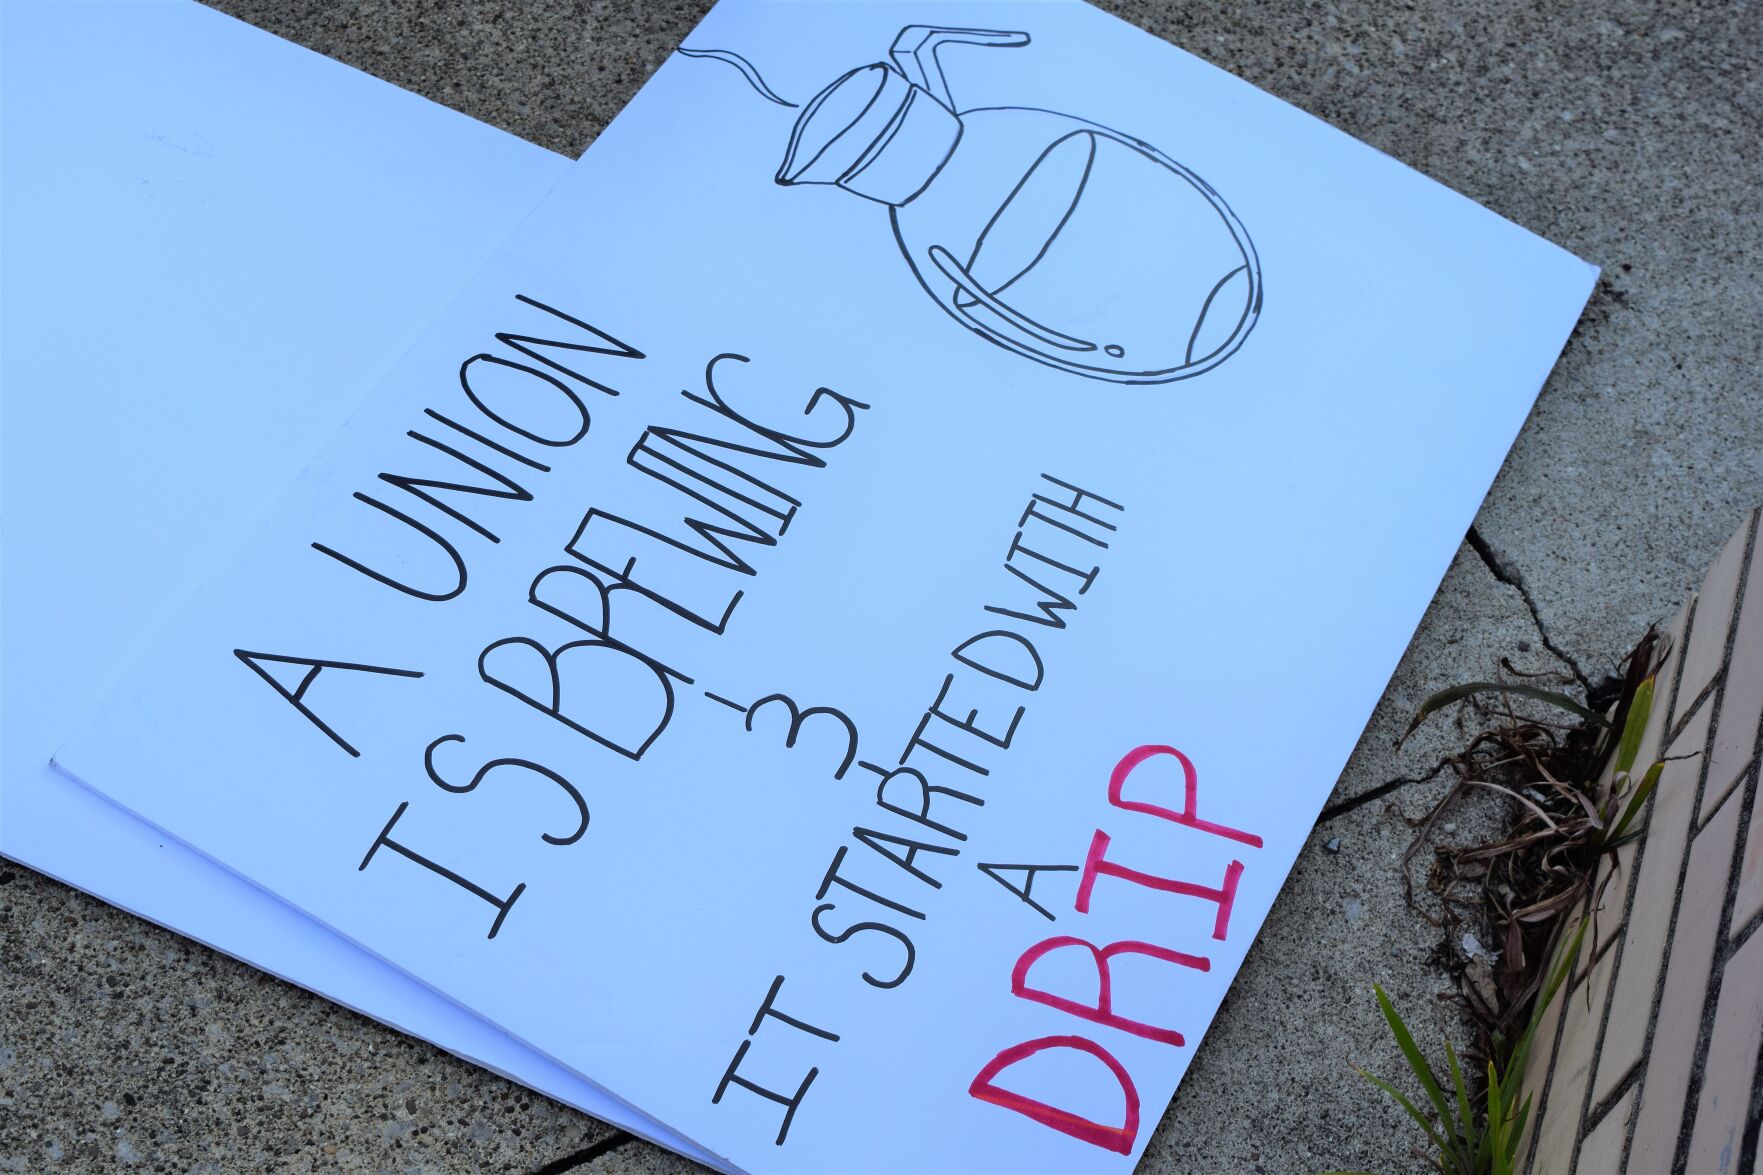 A UNION
IS BREWING
&
IT STARTED WITH
A
DRIP